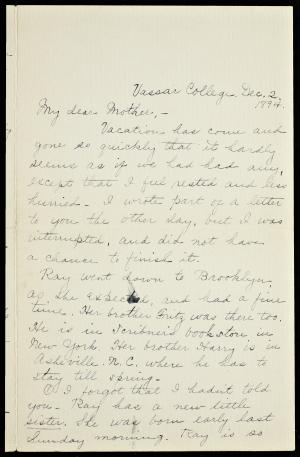 Vassar College. Dec. 2,
1894.
My dear Mother,-
Vacation has come and
gone so quickly that it hardly
seems as if we had had any,
except that I feel rested and less
hurried. I wrote part of a letter
to you the other day, but I was
interrupted, and did not have
a chance to finish it.
Ray went down to Brooklyn,
as she expected, and had a fine
time. Her brother was there too.
He is in Scribner's bookstore in
New York. Her brother Harry is in
Asheville. N.C. where he has to
stay till spring.
O I forgot that I hadn't told
you. Ray has a new little
sister. She was born early last
Sunday morning. Ray is so